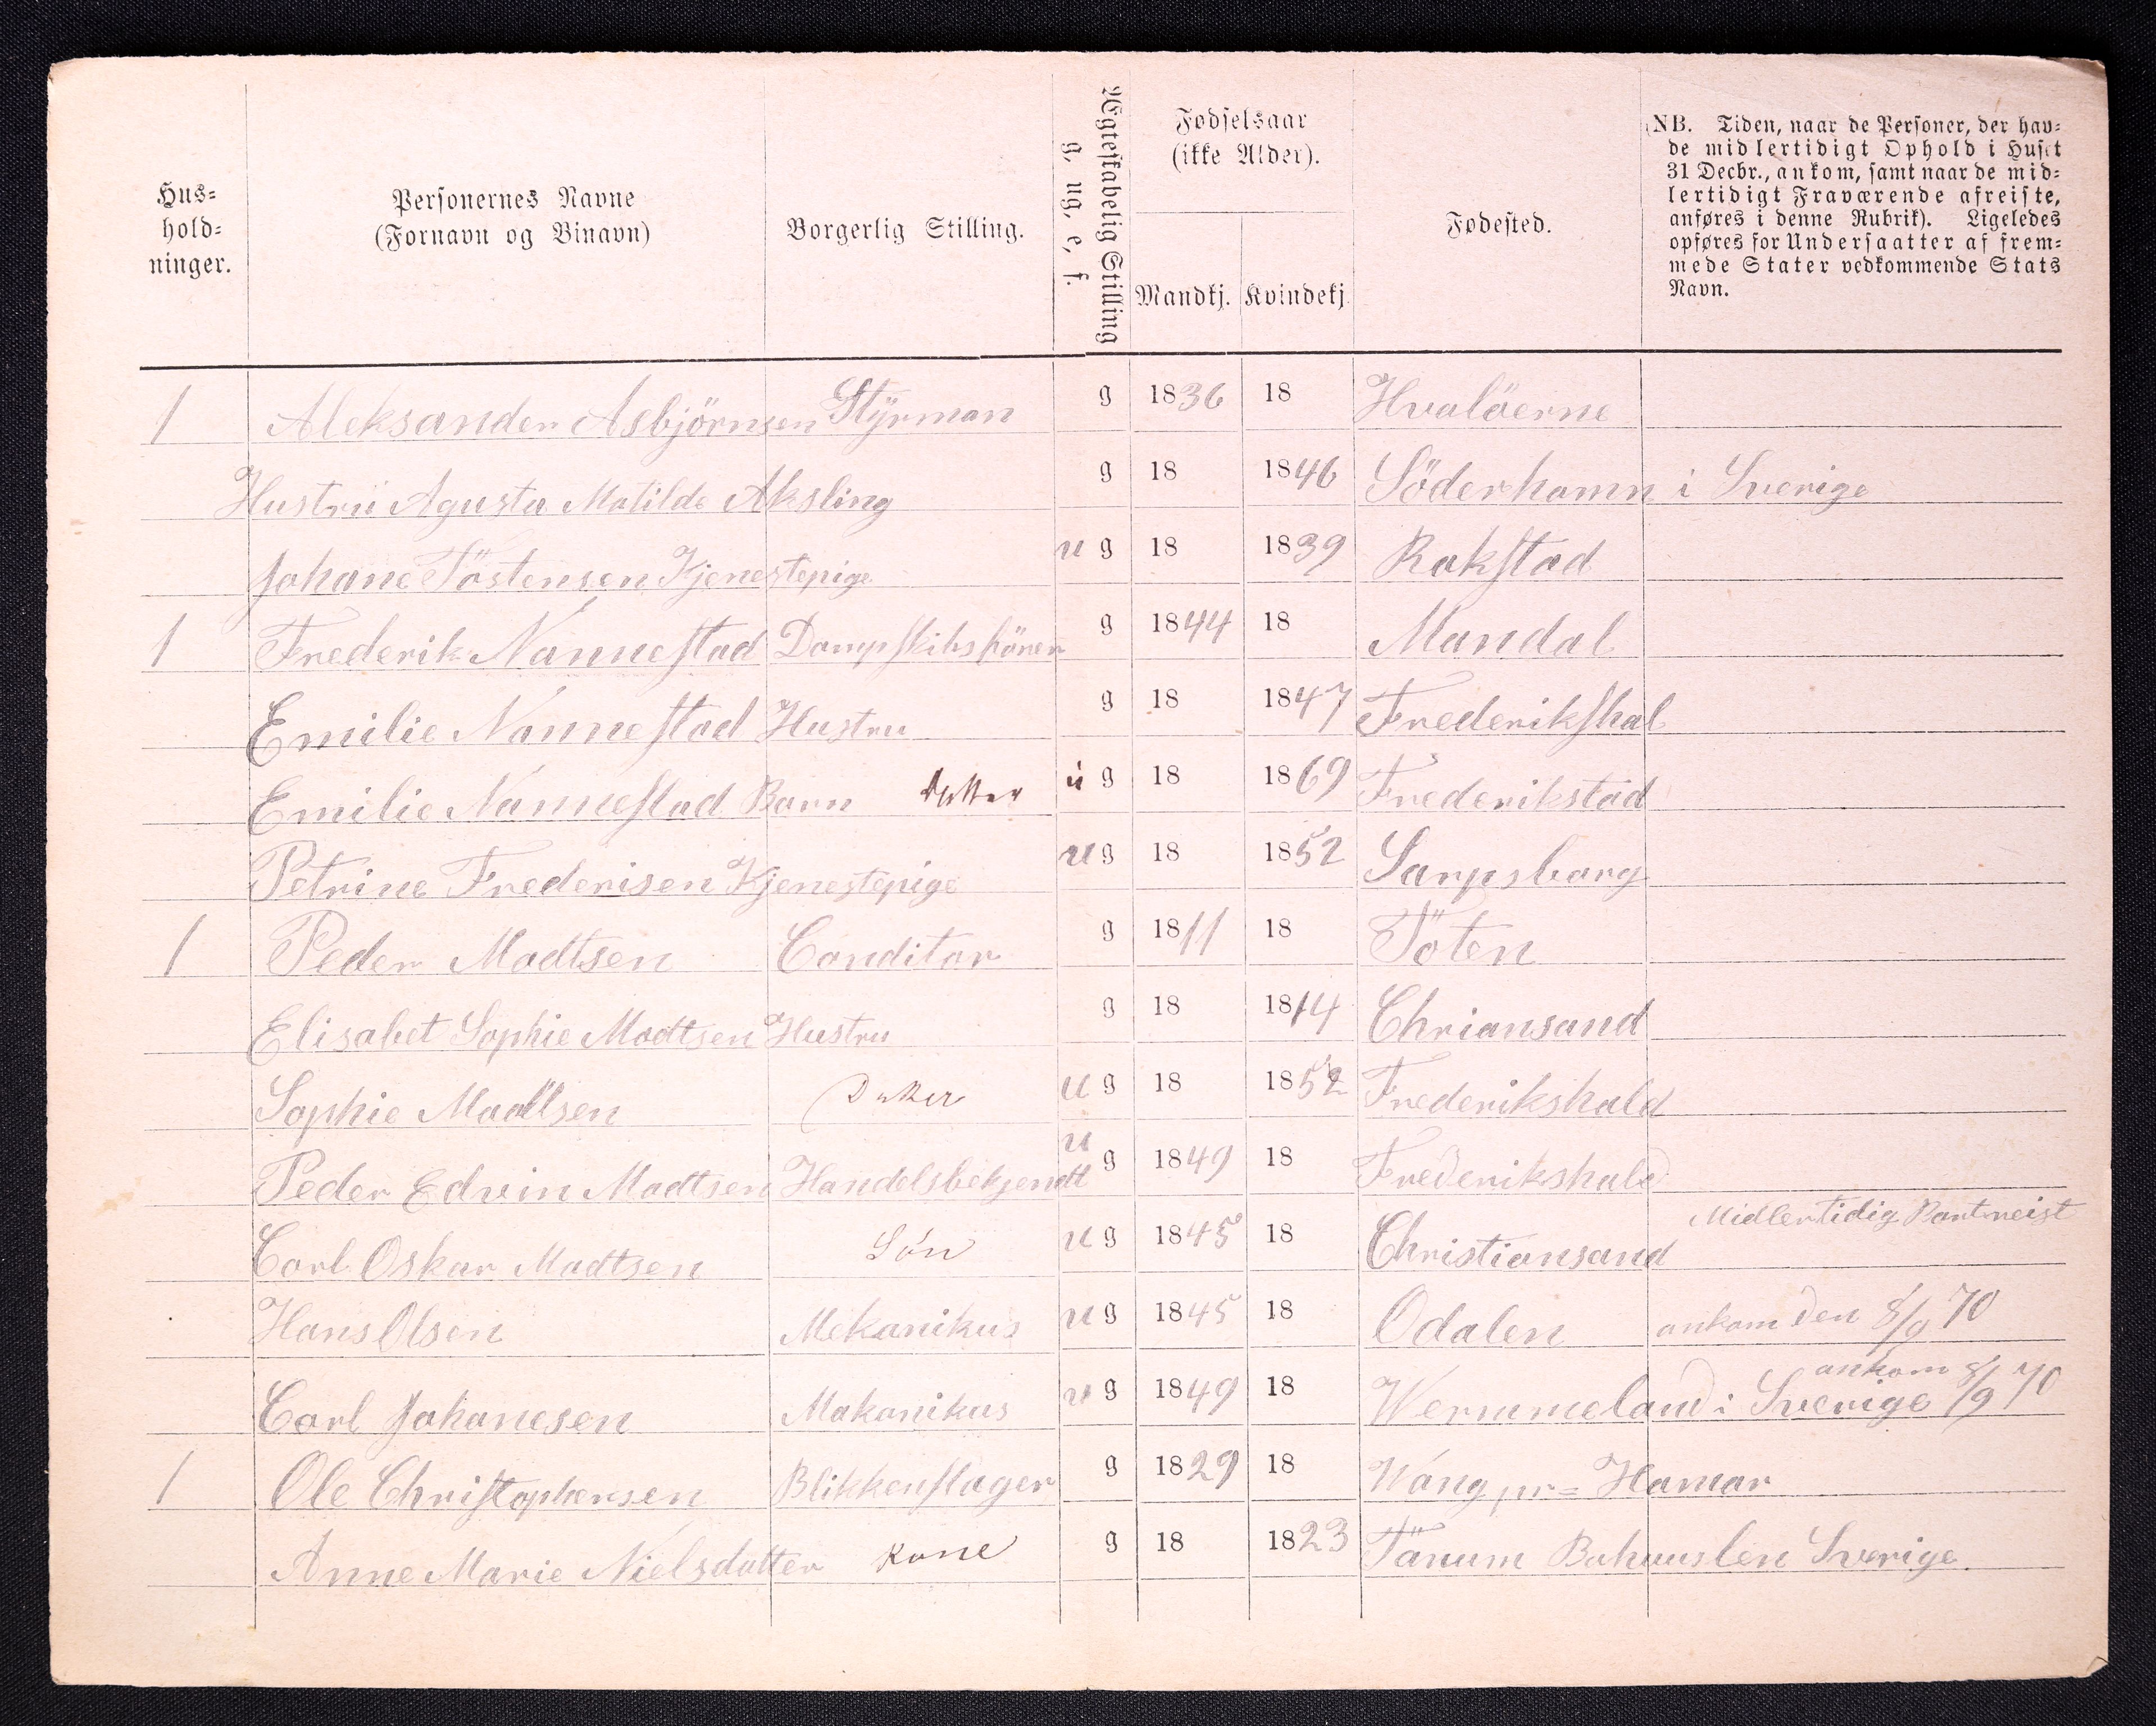 Hus-
hold-
ninger.
Personernes Navne
(Fornavn og Binavn)
Borgerlig Stilling.
Ægteskabelig Stilling
g, ug, e, f.
Fødselsaar
(ikke Alder).
Mandkj. Kvindekj.
Fødested.
NB. Tiden, naar de Personer, der hav-
de midlertidigt Ophold i Huset
31 Decbr., ankom, samt naar de mid-
lertidigt Fraværende afreiste,
anføres i denne Rubrik). Ligeledes
opføres for Undersaatter af frem-
mede Stater vedkommende Stats
Navn.
1 Aleksander Asbjörnsen Styrman g 1836 18 Hvalöerne
Hustru Agusta Matilde Aksling g 18 1846 Söderhamn i Sverige
Johane Töstensen Tjenestepige ug 18 1839 Rakstad
1 Frederik Nannestad Dampskibsförer g 1844 18 Mandal
Emilie Nannestad Hustru g 18 1847 Frederikshal
Emilie Nannestad Barn datter ug 18 1869 Frederikstad
Petrine Frederisen Tjenestepige ug 18 1852 Sarpsborg
1 Peder Madtsen Conditor g 1811 18 Töten
Elisabet Sophie Madtsen Hustru g 18 1814 Chriansand
Sophie Madtsen Datter ug 18 1852 Frederikshald
Peder Edvin Madtsen Handelsbetjendt ug 1849 18 Frederikshald
Carl Oskar Madtsen Sön ug 1845 18 Christiansand Midlertidig Bortreist
Hans Olsen Mekanikus ug 1845 18 Odalen ankom den 8/9 70
Carl Johanesen Makanikus ug 1849 18 Wermmeland i Sverige ankom 8/9 70
1 Ole Christophersen Blikkenslager g 1829 18 Wang pr= Hamar
Anne Marie Nielsdatter Kone g 18 1823 Tanum Bahuuslen Sverige.